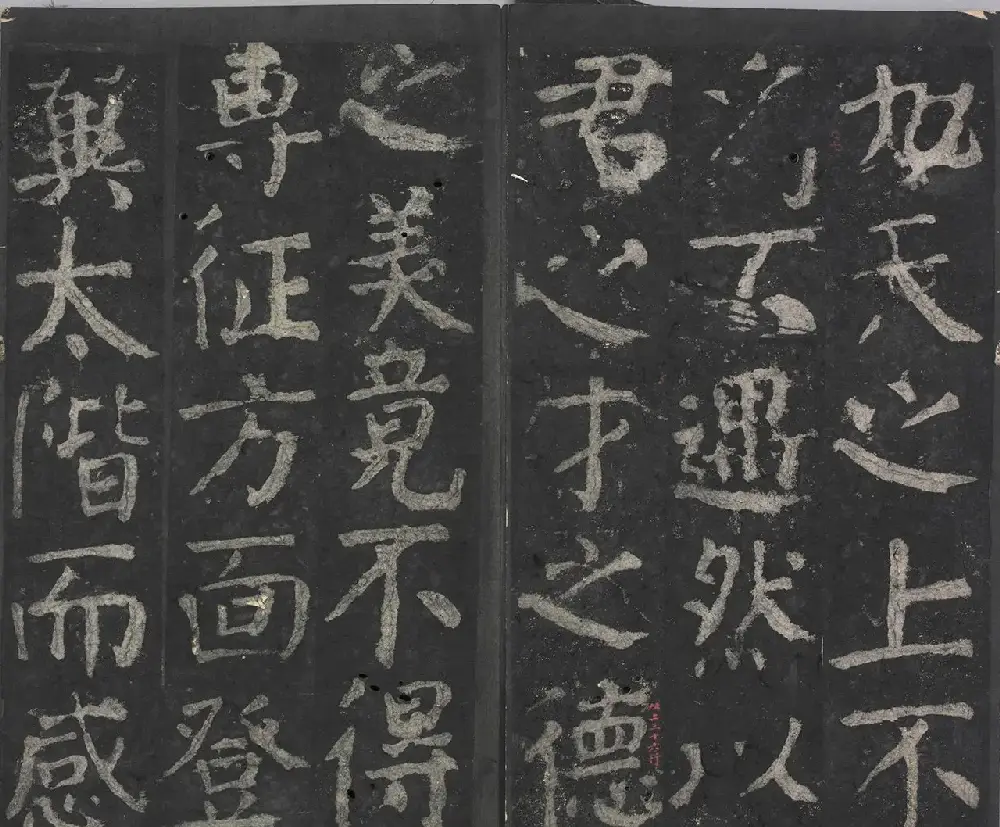 之上不
遇然以
君之才之德
之美竟不得
專征方面登
翼太階而感